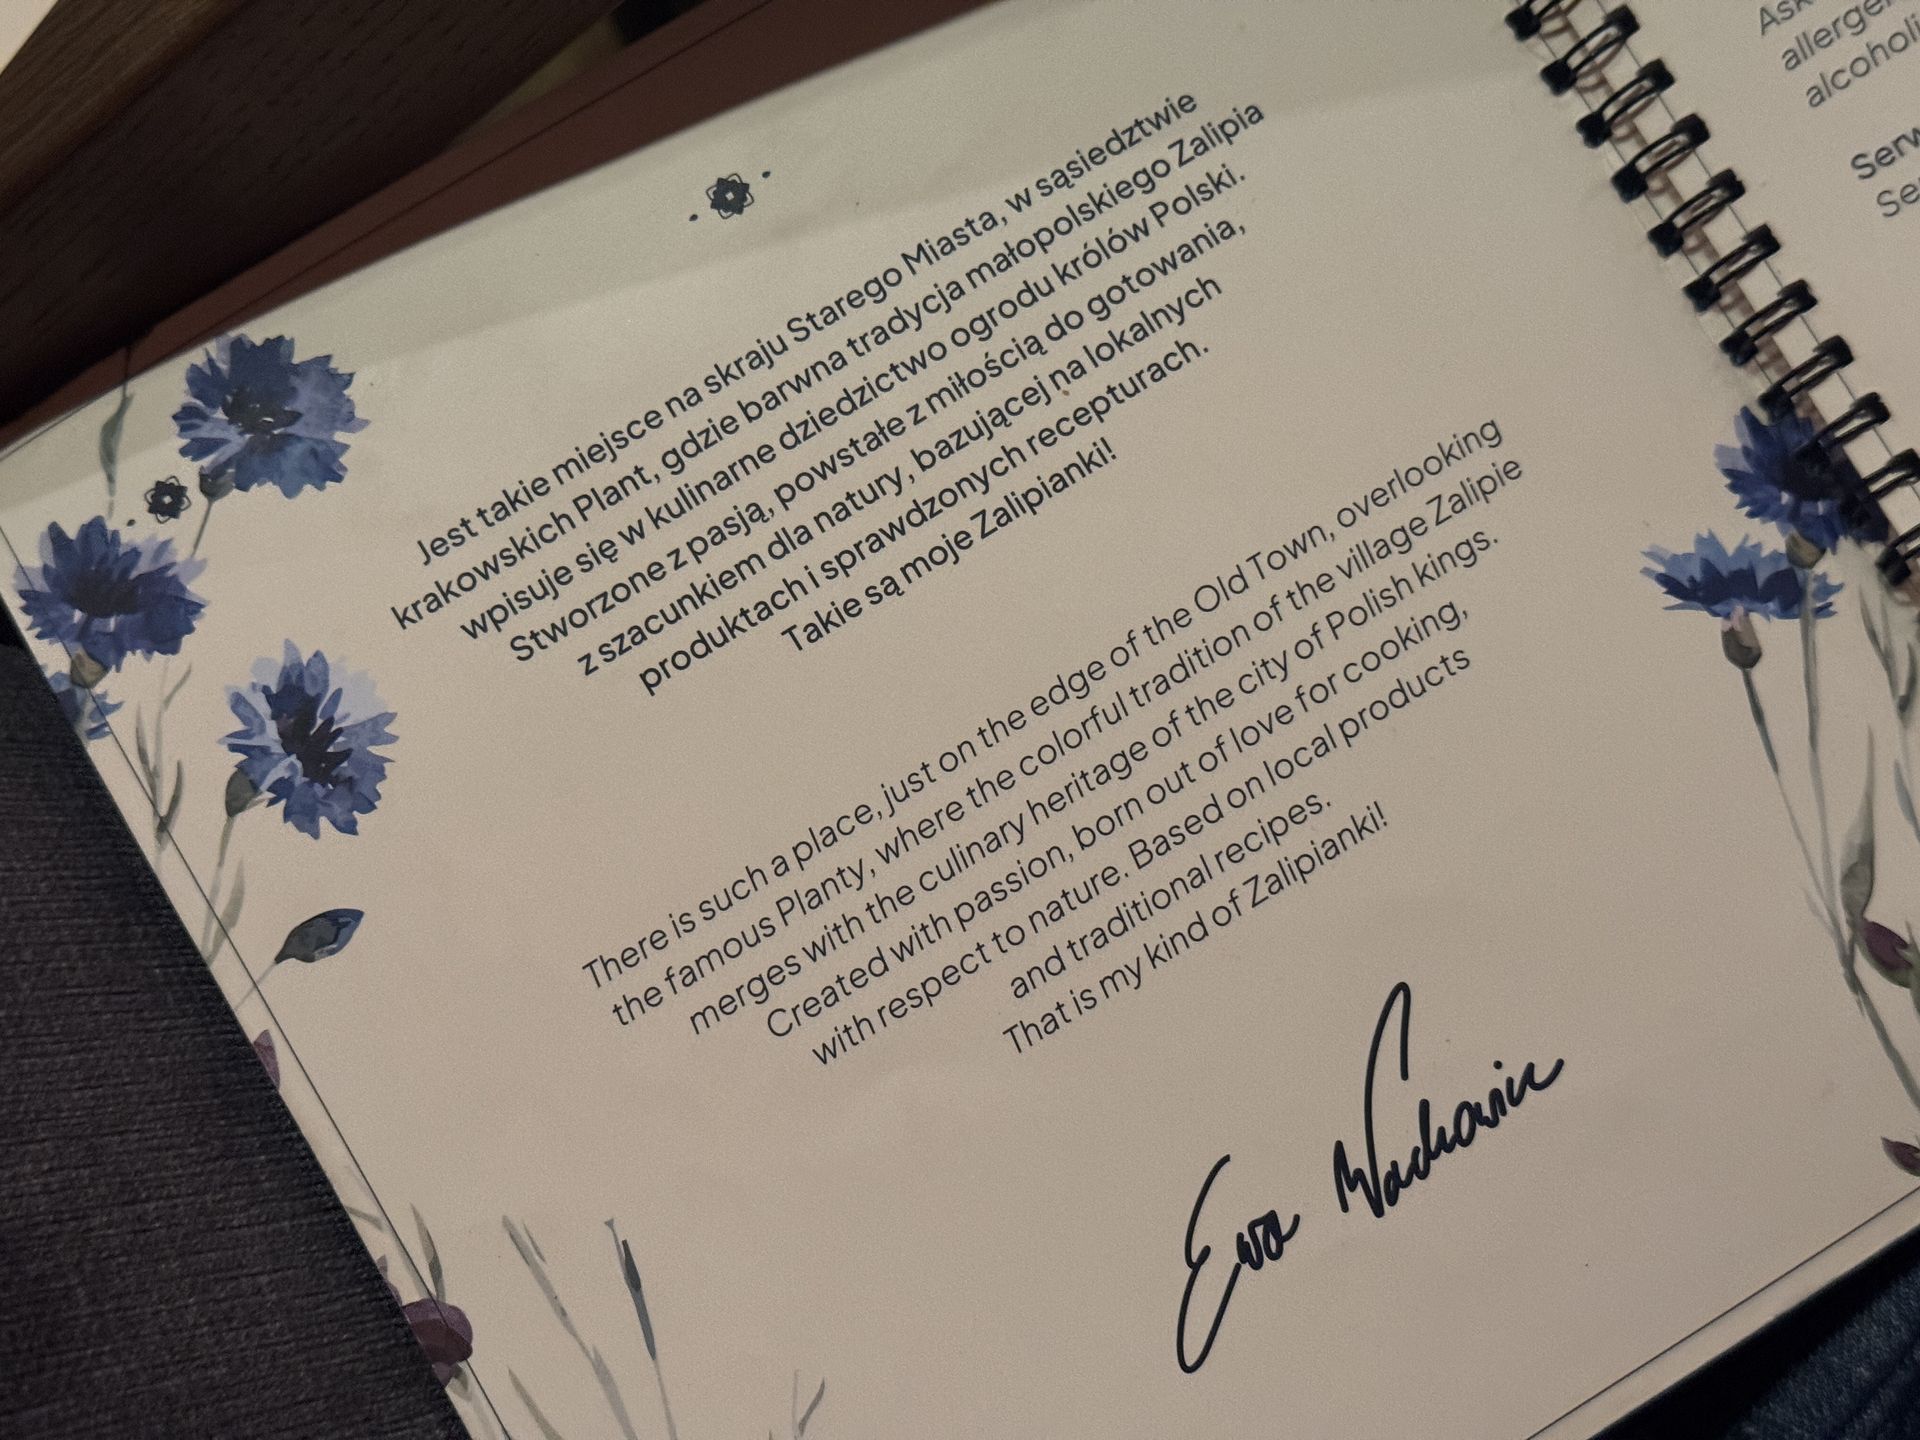 Jest takie miejsce na skraju Starego Miasta, w sąsiedztwie
krakowskich Plant, gdzie barwna tradycja małopolskiego Zalipia
wpisuje się w kulinarne dziedzictwo ogrodu królów Polski.
Stworzone z pasją, powstałe z miłością do gotowania,
z szacunkiem dla natury, bazującej na lokalnych
produktach i sprawdzonych recepturach.
Takie są moje Zalipianki!
There is such a place, just on the edge of the Old Town, overlooking
the famous Planty, where the colorful tradition of the village Zalipie
merges with the culinary heritage of the city of Polish kings.
Created with passion, born out of love for cooking,
with respect to nature. Based on local products
and traditional recipes.
That is my kind of Zalipianki!
Ewa Wachowicz
Ask